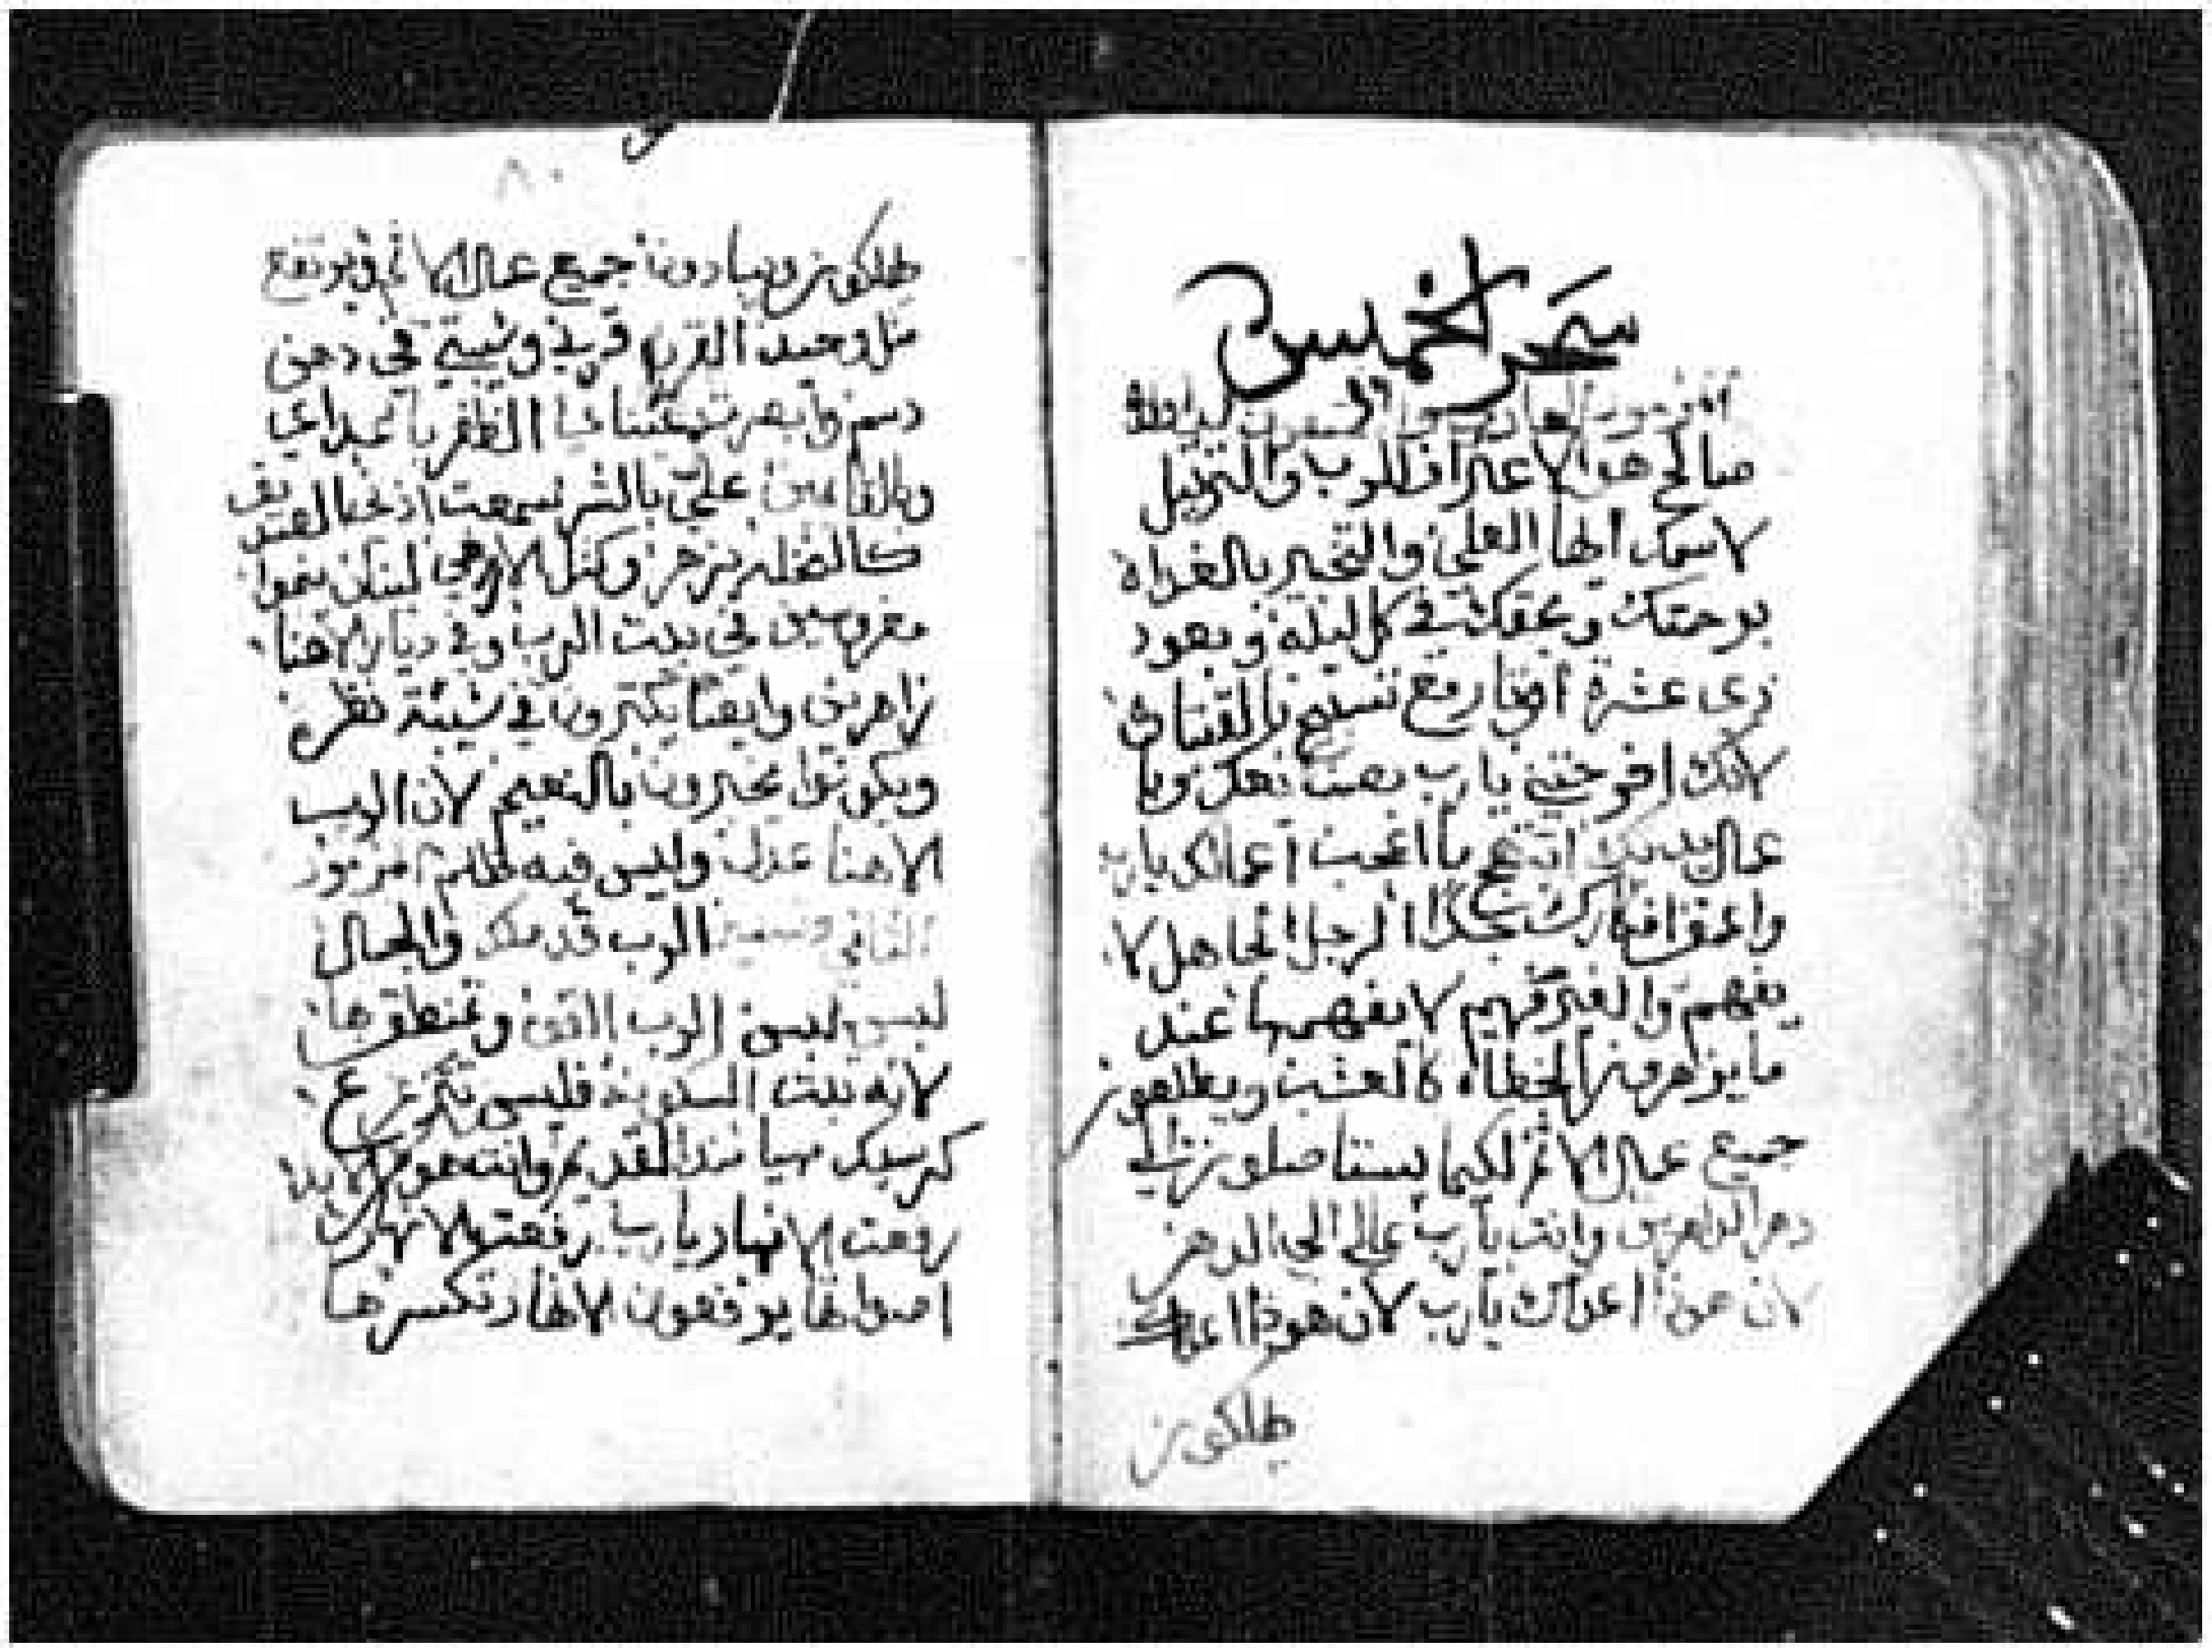 سحر الخميس
صالح هو الاعتراف للرب والترتيل
لاسمك ايها العلي والتخبير بالغداة
برحمتك وبحقك في كل ليلة وبعود
ذي عشرة اوتار مع تسبيح بالقيثارة
لانك افرحتني يارب بصنايعك وبا
عمال يديك ابتهج ما اعجب اعمالك يارب
واعمق افكارك جدا الرجل الجاهل لا
يفهم والغير فهيم لا يفهمها عند
ما يزهرون الخطاه كالعشب ويطلعون
جميع عمال الاثم لكيما يستاصلون الي
دهر الداهرين وانت يارب عالي الي الدهر
لان هوذا اعداك يارب لان هوذا اعداك
يهلكون
٨٠
يهلكون ويبادون جميع عمال الاثم ويرتفع
مثل وحيد القرن قرني وشيبتي في دهن
دسم وابصرت عيناي الظفر باعداي
وبالقايمين علي بالشر سمعت اذني الصديق
كالنخله يزهر وكمثل الارز في لبنان ينموا
مغروسين في بيت الرب وفي ديار الاهنا
زاهرين وايضا يكثرون في شيبة نظره
ويكونوا مخبرون بالنعيم لان الرب
الاهنا عدل وليس فيه ظلم مزمور
الرب قد ملك والجمال
لبس لبس الرب القوه وتمنطق بها
لانه ثبت المسكونة فليس تتزعزع
كرسيك مهيا منذ القديم وانت هو منذ الابد
رفعت الانهار يارب رفعت الانهار
اصواتها يرفعون الانهار تكسرها